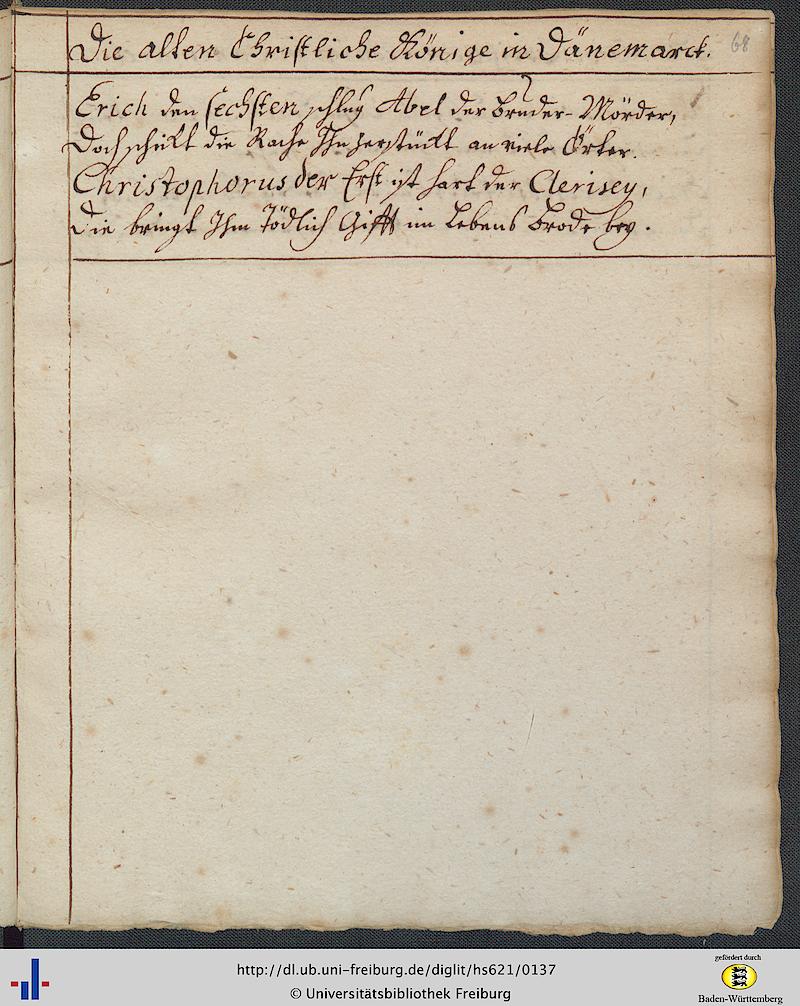 Die alten Christliche Könige in Dänemarck. 68
Erich den sechsten schlug Abel der Bruder-Mörder,
Doch schickt die Rache Ihn zerstückt an viele Örter.
Christophorus der Erst ist hart der Clerisey,
Die bringt Ihm Tödlich Gifft im Lebens Brode bey.
http://dl.ub.uni-freiburg.de/diglit/hs621/0137
© Universitätsbibliothek Freiburg
gefördert durch
Baden-Württemberg